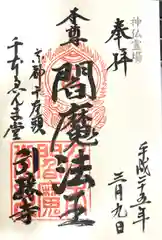 神仏霊場
奉拝
平成二十五年
三月九日
本尊
閻魔法王
京都十六番
千本ゑんま堂
引接寺